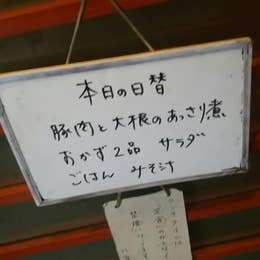 本日の日替
豚肉と大根のあっさり煮
おかず2品 サラダ
ごはん みそ汁